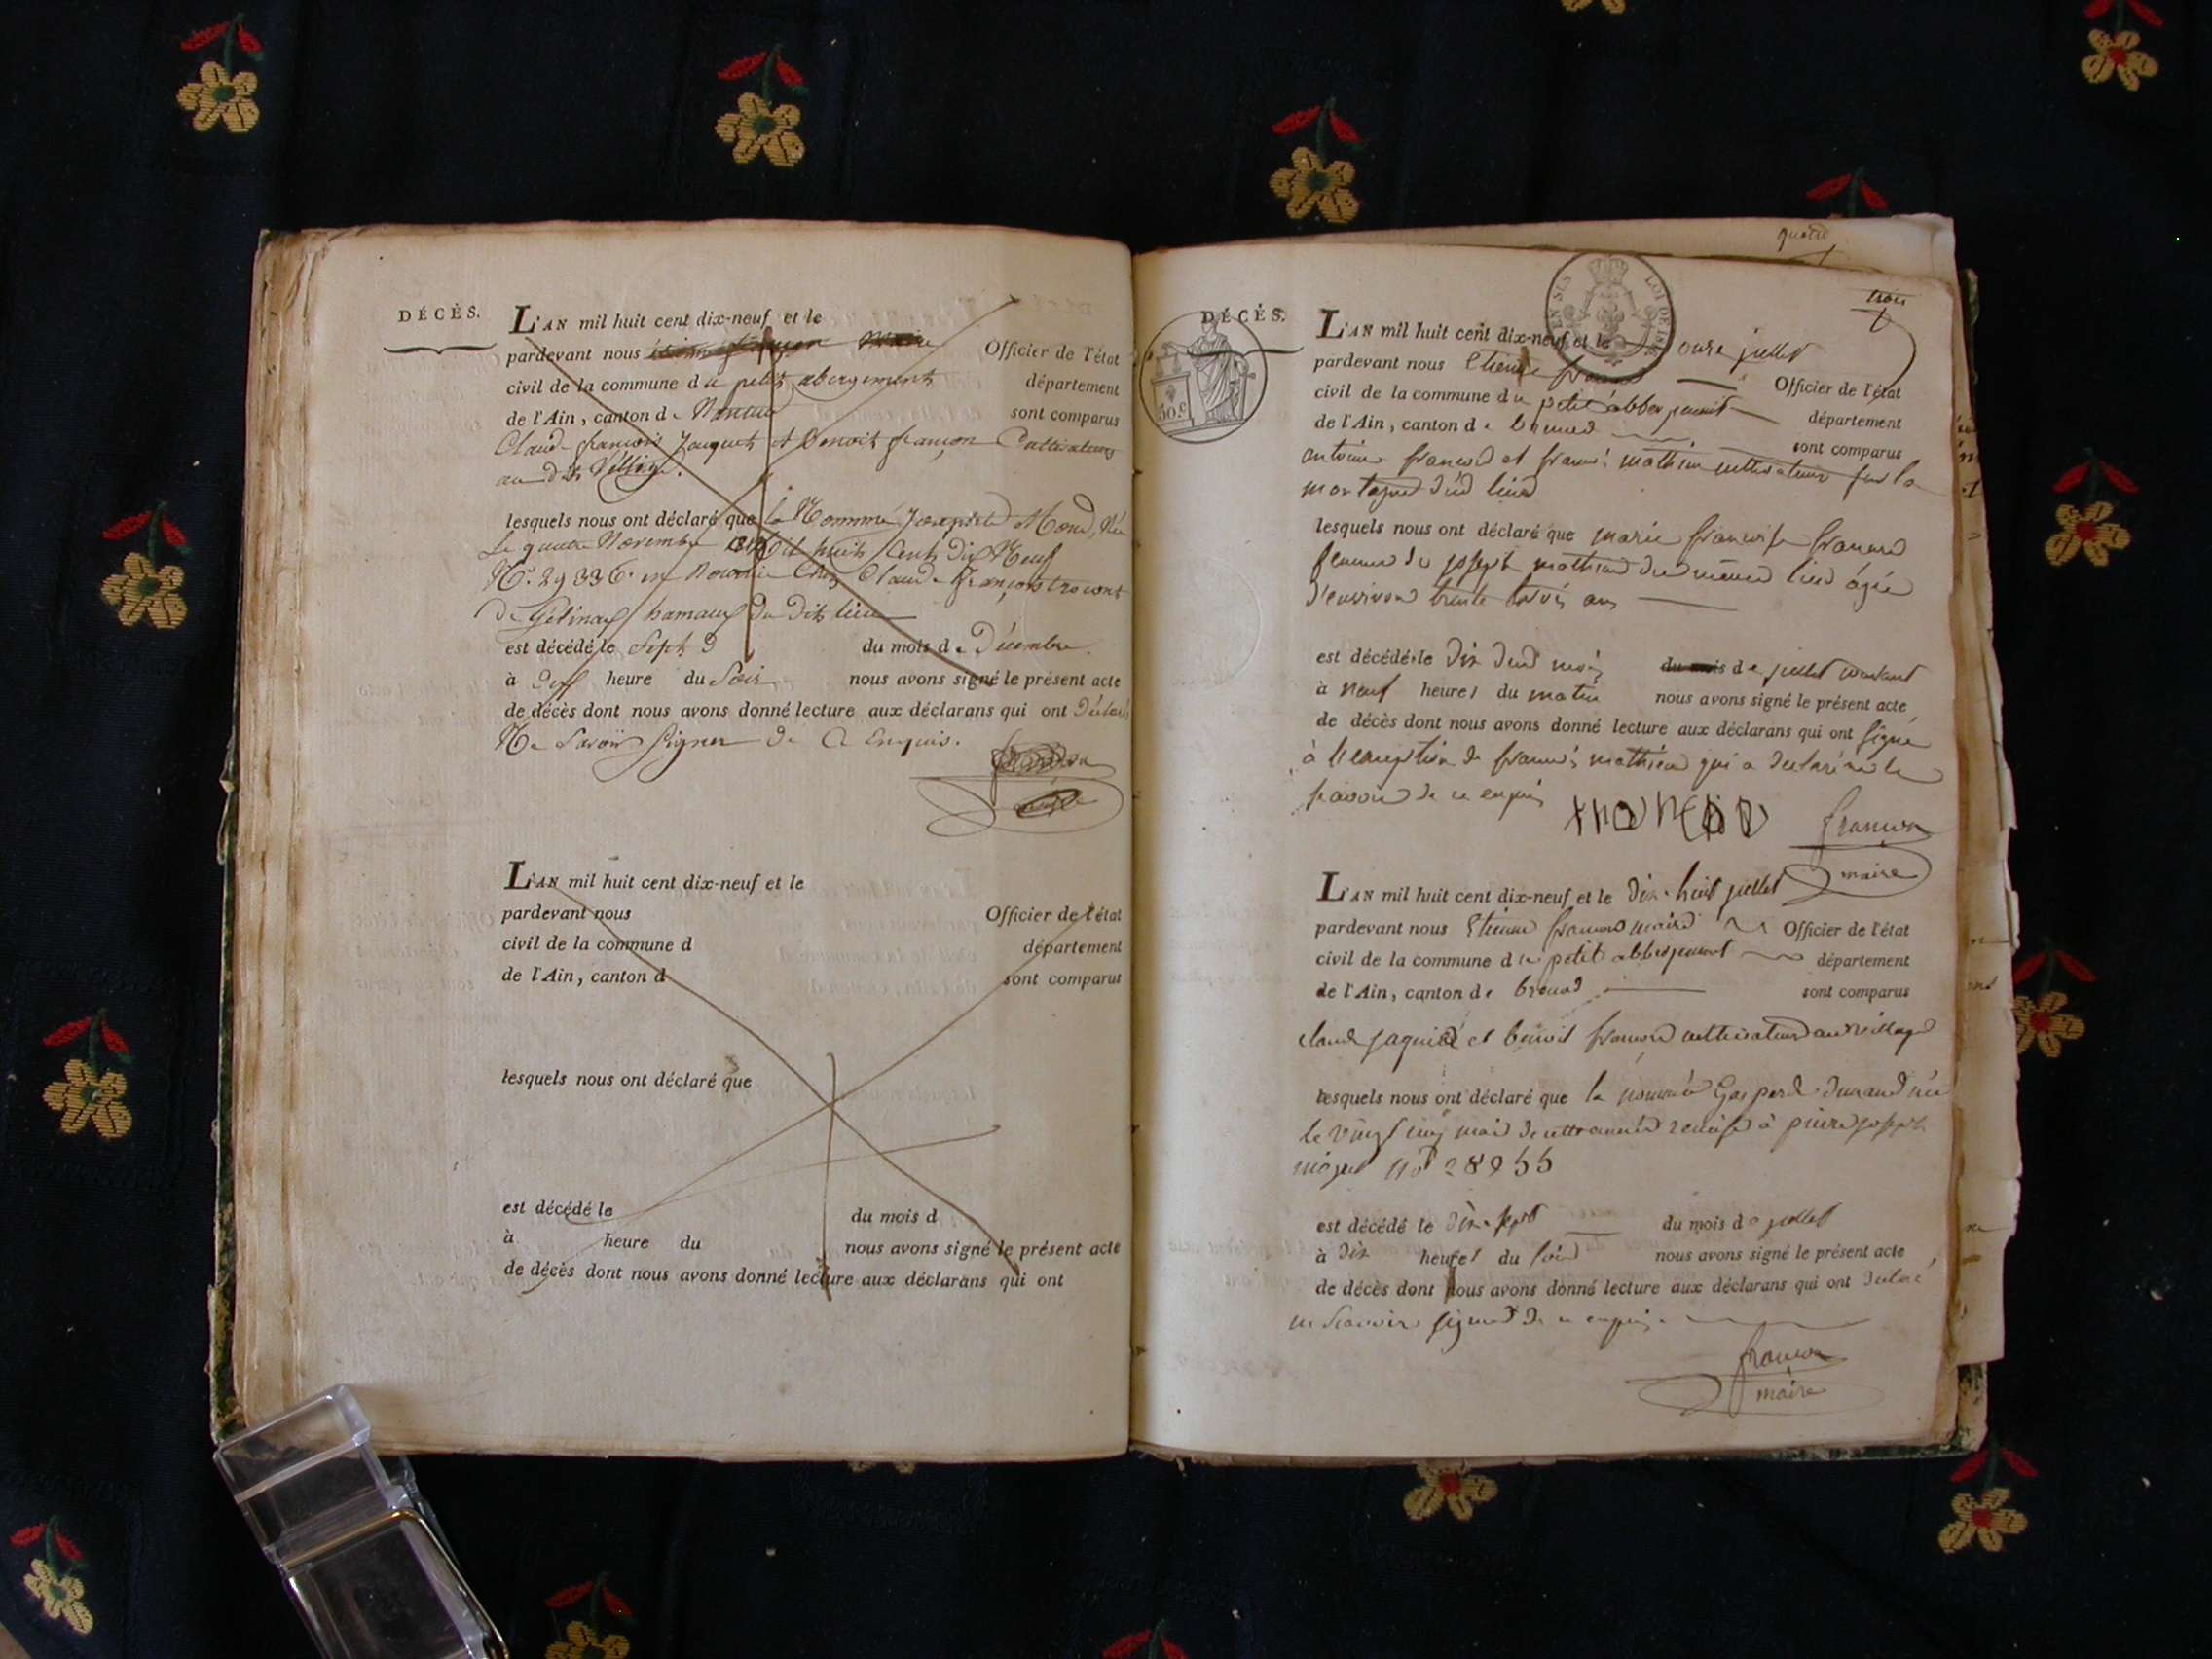 DÉCÈS.
L'AN mil huit cent dix-neuf et le
pardevant nous Maire Officier de l'état
civil de la commune du petit abergement département
de l'Ain, canton de Nantua sont comparus
Claude françois Jacquet et Benoit françon Cultivateurs
au dit Village.
lesquels nous ont déclaré que le Nommé Née
Le quatre Novembre Mil huit Cent Dix Neuf
N.º 29336. en Nourrice Chez Claude François
de hameau du Dit lieu
est décédé le Sept du mois de Décembre.
à heure du Soir nous avons signé le présent acte
de décès dont nous avons donné lecture aux déclarans qui ont Déclaré
Ne Savoir Signer De Ce Enquis.
L'AN mil huit cent dix-neuf et le
pardevant nous Officier de l'état
civil de la commune d département
de l'Ain, canton d sont comparus
lesquels nous ont déclaré que
est décédé le du mois d
à heure du nous avons signé le présent acte
de décès dont nous avons donné lecture aux déclarans qui ont
quatre
trois
DÉCÈS.
30.c
LOI DE
L'AN mil huit cent dix-neuf et le onze juillet
pardevant nous Etienne françon Officier de l'état
civil de la commune du petit abbergement département
de l'Ain, canton de brenod sont comparus
antoine françon et françois mathieu cultivateurs sur la
montagne dud lieu
lesquels nous ont déclaré que marie françoise françon
femme de joseph mathieu du même lieu âgée
d'environ trente trois ans
est décédé le dix dud mois du mois de juillet courant
à neuf heures du matin nous avons signé le présent acte
de décès dont nous avons donné lecture aux déclarans qui ont signé
à l'exception de françois mathieu qui a déclaré ne le
savoir de ce enquis
françon
maire
L'AN mil huit cent dix-neuf et le dix-huit juillet
pardevant nous Etienne françon maire Officier de l'état
civil de la commune du petit abbergement département
de l'Ain, canton de brenod sont comparus
claude jaquier et benoit françon cultivateurs au village
lesquels nous ont déclaré que le nommé Gaspard durand née
le vingt cinq mai de cette année remise à pierre joseph
no 28955
est décédé le dix-sept du mois de juillet
à dix heures du soir nous avons signé le présent acte
de décès dont nous avons donné lecture aux déclarans qui ont déclaré
ne savoir signer de ce enquis.
françon
maire